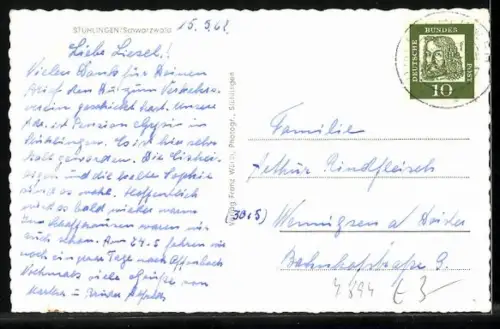 STÜHLINGEN/Schwarzwald
15.5.62
Liebe Liesel!
Vielen Dank für Deinen
Brief den Du zum Verkehrs-
verein geschickt hast. Unsere
Adr. ist Pension
Stühlingen. Es ist hier sehr
kalt geworden. Die
und die kalte Sophie
sind so nahe. Hoffentlich
wird es bald wieder warm
In Schaffhausen waren wir
auch schon. Am 24.5 fahren wir
noch ein paar Tage nach Offenbach
Nochmals viele Grüße von
Verlag Franz Würth, Photogr., Stühlingen
DEUTSCHE BUNDESPOST
10
Familie
Arthur Rindfleisch
(3015) Wennigsen a/Deister
Bahnhofstraße 9.